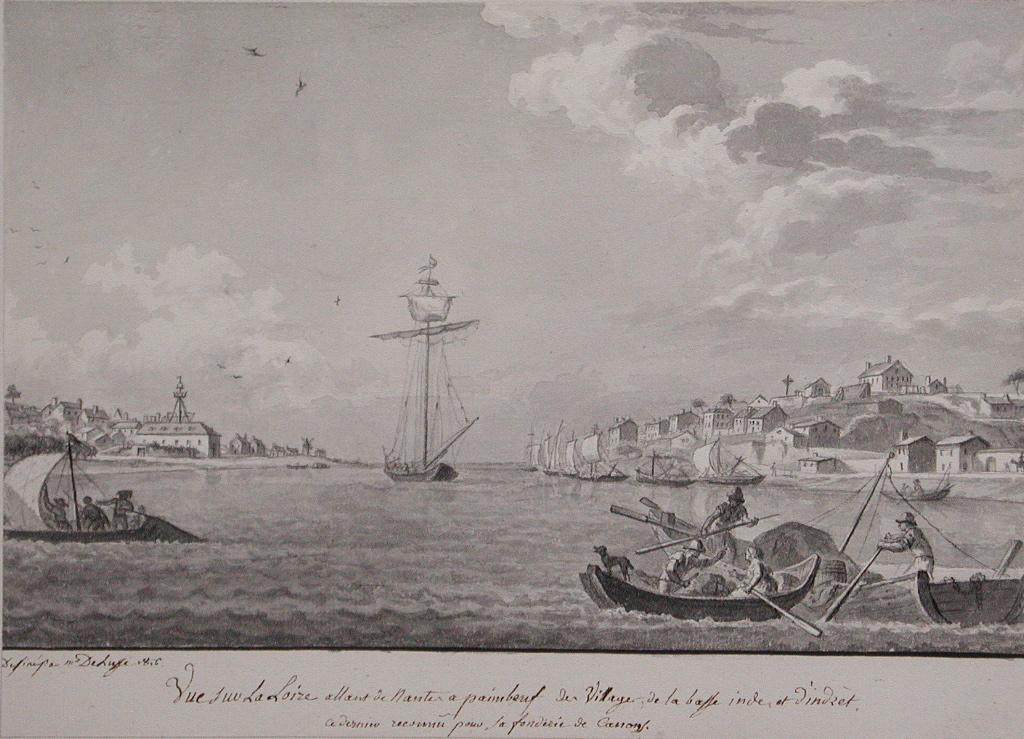 Dessiné par mr DeLusse
Vue sur La Loire allant de Nante a paimbeuf des Village de la basse inde et d'indret,
ce dernier reconnu pour sa fonderie de Canons.